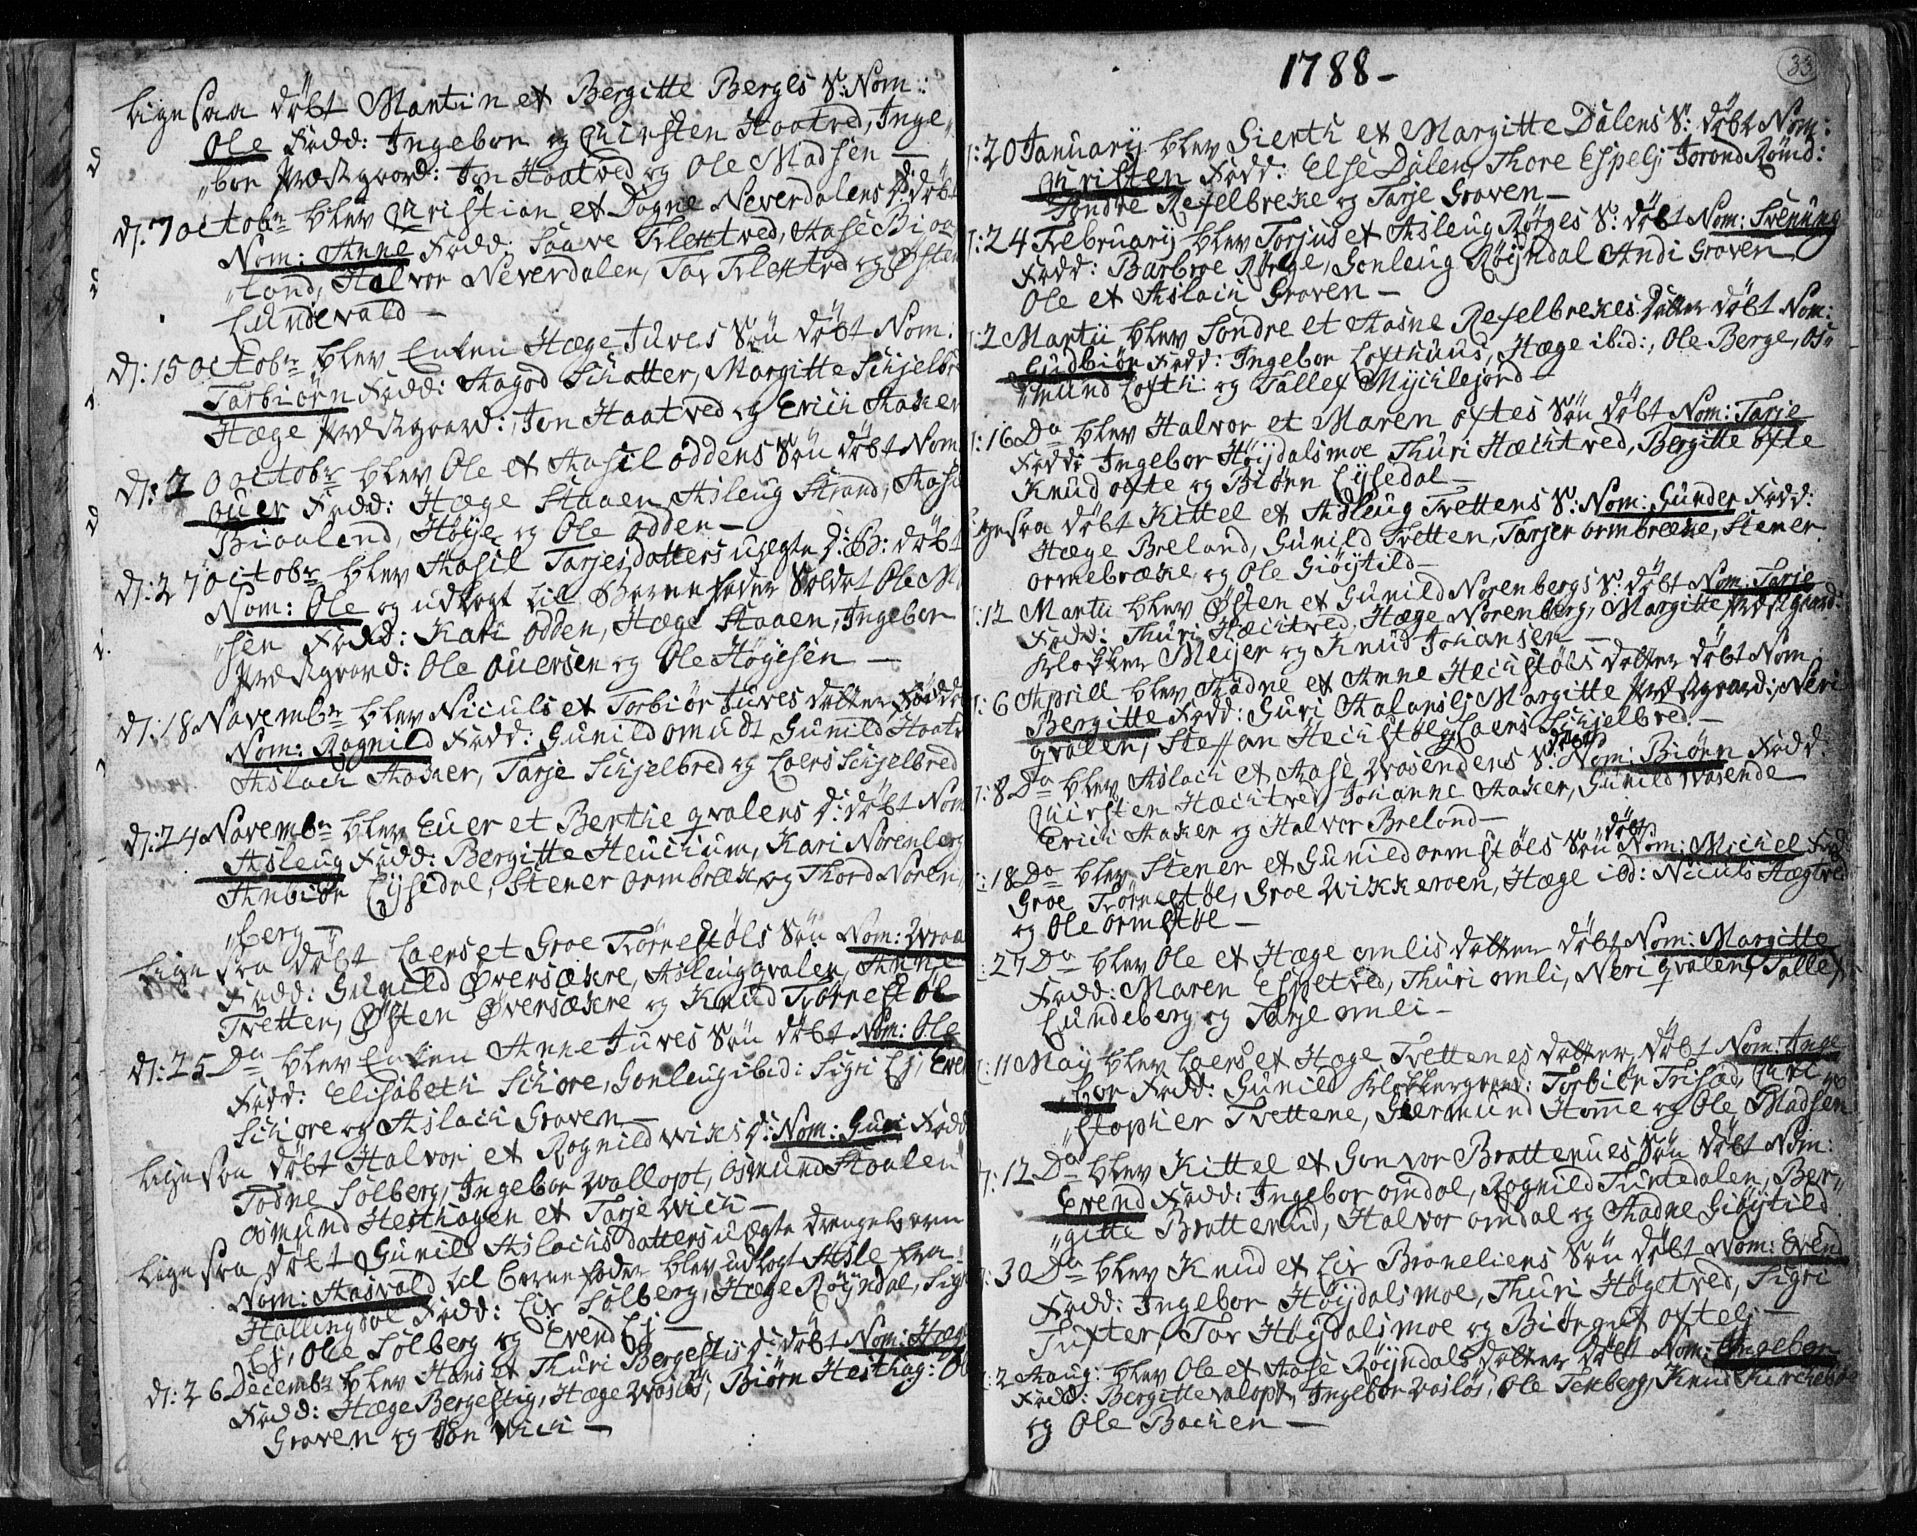 lige saa døbt Martin et Bergitte Berges S: Nom:
Ole Fadd: Ingebor og Kirsten Haatved, Inge„
„bor Præstgaard: Jon Haatved og Ole Madsen —
d: 7 octobr blev Kristian et Dagne Neverdalens D: døbt
Nom: Anne Fadd: Saave Haatved, Aase Bioa„
„land, Halvor Neverdalen, Tov og Østen
Lundevald —
d: 15 octobr blev Enken Hæge Juves Søn døbt Nom:
Tarbiørn Fadd: Aagod Schatter, Margitte Schjelbr
Hæge Præstgaard: Jon Haatved og Erich Aaker
d: 20 octobr blev Ole et Aasil oddens Søn døbt Nom
ouer Fadd: Hæge Staaen, Asleug Strand, Aase
Bioaland, Høye og Ole odden —
d: 27 octobr blev Aasil Tarjesdatters uægte D: B: døbt
Nom: Ole og udlagt til Barnefader Soldat Ole M
„sen Fadd: Kari odden, Hæge Staaen, Ingebor
Præstgaard: Ole ouersen og Ole Høyesen —
d: 18 Novembr blev Niculs et Torbiør Juves datter
Nom: Ragnild Fadd: Gunild omudt Gunild Haatv
Aslach Aaker, Tarje Schjelbred og Laers Schjelbred
d: 24 Novembr blev Euer et Berthe qvalens D: døbt Nom
Asleug Fadd: Bergitte Heuchum, Kari Norenberg
Anbiør Lysedal, Stener ormbræke og Thord Noren„
„berg —
lige saa døbt Laers et Groe Tvørnestøls Søn Nom: Wraal
Fadd: Gunild Øversækre, Asleug qvalen, Anne
Tvetten, Østen Øversækre og Knud Tvørnestøl
d: 25 Do blev Enken Anne Juves Søn døbt Nom: Ole
Fadd: Elisabeth Schore, Gonleug ibid: Sigri Ej, Even
Schore og Aslach Graven —
lige saa døbt Halvor et Ragnild Wiks D: Nom: Guri Fadd
Todne Solberg, Ingebor Vallopt, Osmund Staalen
Osmund Hesthagen et Tarje Wich —
lige saa døbt Gunild Aslachs datters uægte Drengebarn
Nom: Aasvald til Barnefader blev udlagt Asle fra
Hallingdal Fadd: Liv Solberg, Hæge Røyndal, Sigri
Ej, Ole Solberg og Evend Ej —
d: 26 Decembr blev Hans et Thuri Bergestigs D: døbt Nom: Hæge
Fadd: Hæge Bergestig, Hæge Wasløs, Biørn Hesthag: Ole
Graven og Jon Wich —
1788 —
33
d: 20 Januarij blev Sierth et Margitte Dalens S: døbt Nom:
Kristen Fadd: Else Dalen, Thore Espeli Jorand Rønd:
Sondre Refelbreke og Tarje Graven —
d: 24 Februarij blev Torjus et Asleug Rørges S: døbt Nom: Svenung
Fadd: Barbroe Rørge, Gonleug Røyndal Andi Graven
Ole et Aslach Graven —
d: 2 Martii blev Sondre et Aasne Refelbrekes datter døbt Nom:
Gudbiør Fadd: Ingebor Lofthuus, Hæge ibid:, Ole Berge, Os„
„mund Lofth: og Tallef Mychlejord —
d: 16 Do blev Halvor et Maren oftes Søn døbt Nom: Tarje
Fadd: Ingebor Høydalsmoe Thuri Hæchtved, Bergitte ofte
Knud ofte og Biørn Lysedal —
ligesaa døbt Kittel et Asleug Tvettens S: Nom: Gunder Fadd:
Hæge Breland, Gunild Tvetten, Tarjer ormbræke, Stener
ormebræke og Ole Giøytild —
d: 12 Martii blev Østen et Gunild Norenbergs S: døbt Nom: Tarje
Fadd: Thuri Hæchtved, Hæge Norenberg, Margitte Præstgaard:
Klokker Meijer og Knud Johansen —
d: 6 Aprill blev Aadne et Anne Hechstøls datter døbt Nom:
Bergitte Fadd: Guri Aalansej Margitte Præstgaard: Neri
qvalen, Steffan Hechstøl og Laers Schjelbred —
d: 8 Do blev Aslach et Aase Wasendens S: døbt Nom: Biørn Fadd:
Kirsten Hæchtved, Johanne Aaker, Gunild Wasende
Erich Aaker og Halvor Breland —
d: 18 Do blev Stener et Gunild ormstøls Søn døbt Nom: Michel Fad
Groe Tvørnestøl, Groe Wikkeroen, Hæge ibd: Niculs Hægtve
og Ole ormstøl —
d: 27 Do blev Ole et Hæge omlis datter døbt Nom: Margitte
Fadd: Maren Espetved, Thuri omli, Neri qvalen, Tallef
Lundeberg og Tarje omli —
d: 11 Maij blev Laers et Hæge Tvettenes datter, døbt Nom: Inge
„bor Fadd: Gunild Klokkergaard: Torbiør Trisad, Chri„
„stopher Tvettene, Giermund Homme og Ole Madsen
d: 12 Do blev Kittel et Gonvor Brattenues Søn døbt Nom:
Evend Fadd: Ingebor omdal, Ragnild Suntedalen, Ber„
„gitte Brattenud, Halvor omdal og Aadne Giøytild
d: 30 Do blev Knud et Liv Braneliens Søn døbt Nom: Evend
Fadd: Ingebor Høydalsmoe, Thuri Høgetved, Sigri
Tufter, Tov Høydalsmoe og Biørgnt oftej —
d: 2 Aaug: blev Ole et Aase Røyndals datter døbt Nom: Ingebor
Fadd: Bergitte Valopt, Ingebor Vasløs, Ole Tenberg, Knud Kircheboe
og Ole Bachen —